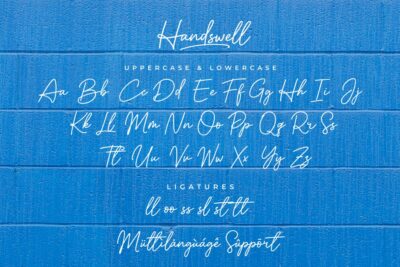 Handswell
UPPERCASE & LOWERCASE
Aa Bb Cc Dd Ee Ff Gg Hh Ii Jj
Kk Ll Mm Nn Oo Pp Qq Rr Ss
Tt Uu Vv Ww Xx Yy Zz
LIGATURES
ll oo ss sl st tt
Müttilánguágé Support